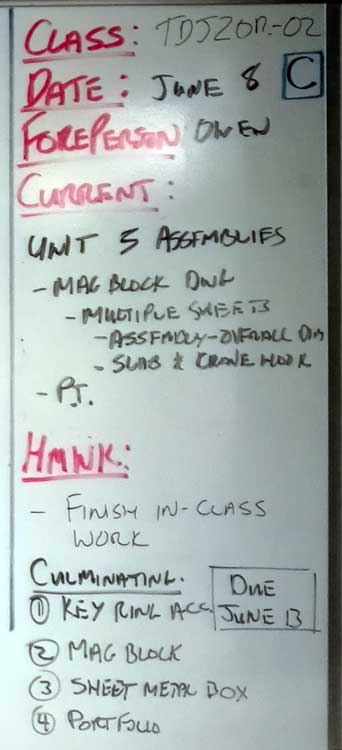 CLASS: TDJ20R-02
DATE: JUNE 8 C
FOREPERSON OWEN
CURRENT:
UNIT 5 ASSEMBLIES
- MAG BLOCK DWG
- MULTIPLE SHEETS
- ASSEMBLY-OVERALL DIM
- SLAB & CRANE HOOK
- P.T.
HMWK:
- FINISH IN-CLASS
WORK
CULMINATING.
① KEY RING ACC.
DUE
JUNE 13
② MAG BLOCK
③ SHEET METAL BOX
④ PORTFOLIO